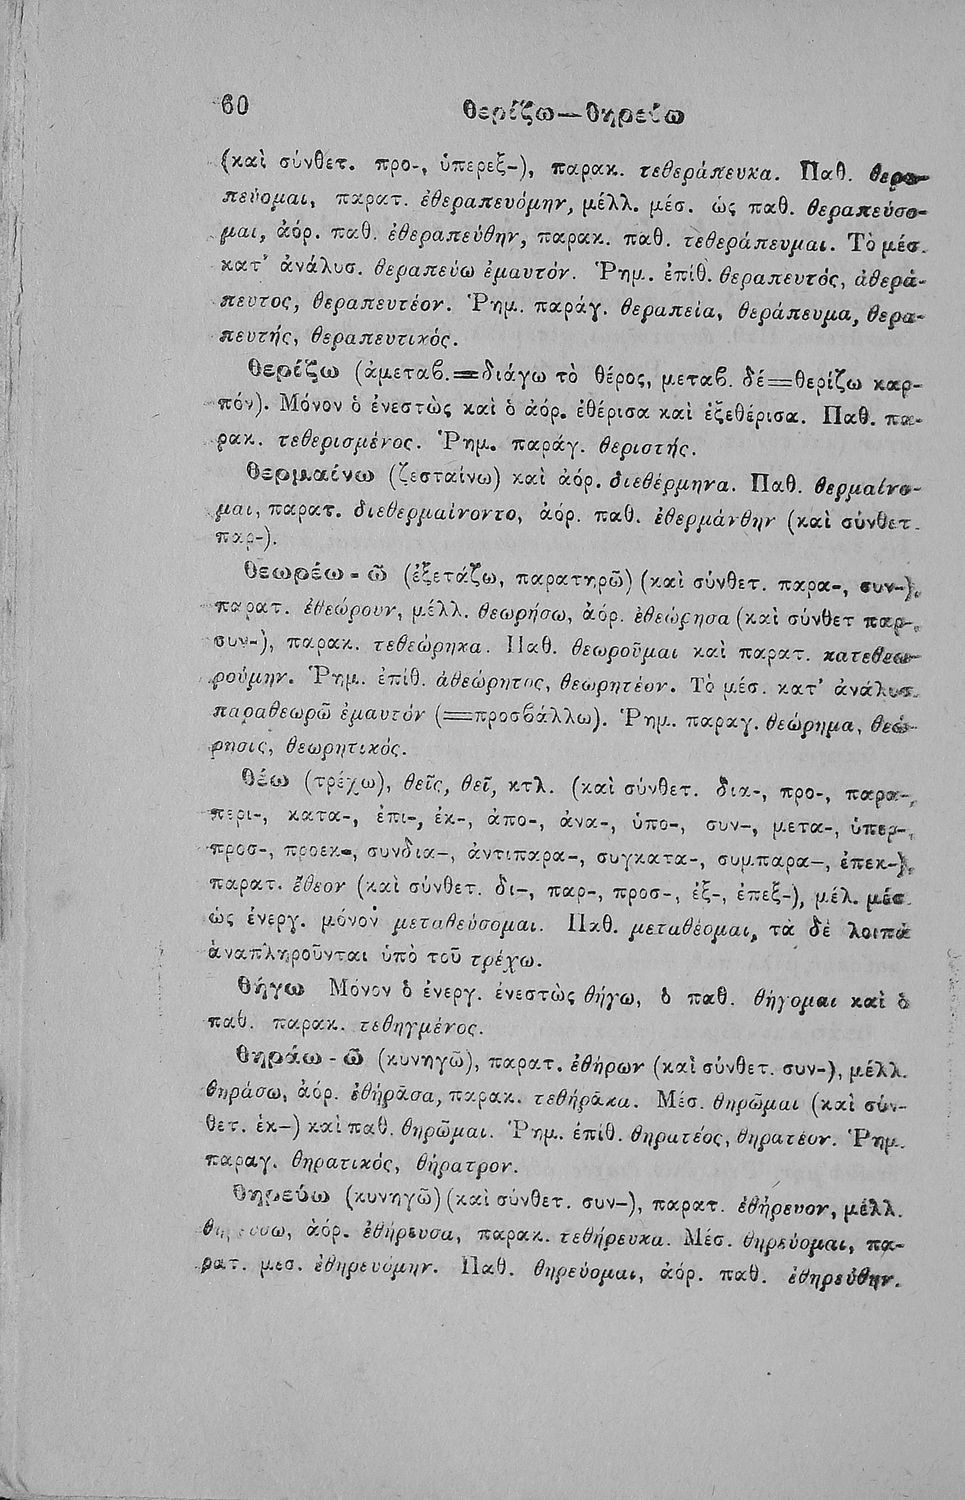 60
θερίζω—θηρεύω
(καὶ σύνθετ. προ-, ὑπερεξ-), παρακ. τεθεράπευκα. Παθ. θερα-
πεύομαι, παρατ. ἐθεραπευόμην, μέλλ. μέσ. ὡς παθ. θεραπεύσο-
μαι, ἀόρ. παθ. ἐθεραπεύθην, παρακ. παθ. τεθεράπευμαι. Τὸ μέσ.
κατ' ἀνάλυσ. θεραπεύω ἐμαυτόν. Ῥημ. ἐπίθ. θεραπευτός, ἀθερά-
πευτος, θεραπευτέον. Ῥημ. παράγ. θεραπεία, θεράπευμα, θερα-
πευτής, θεραπευτικός.
θερίζω (ἀμεταβ.=διάγω τὸ θέρος, μεταβ. δέ=θερίζω καρ-
πόν). Μόνον ὁ ἐνεστὼς καὶ ὁ ἀόρ. ἐθέρισα καὶ ἐξεθέρισα. Παθ. πα-
ρακ. τεθερισμένος. Ῥημ. παράγ. θεριστής.
θερμαίνω (ζεσταίνω) καὶ ἀόρ. διεθέρμηνα. Παθ. θερμαίνο-
μαι, παρατ. διεθερμαίνοντο, ἀόρ. παθ. ἐθερμάνθην (καὶ σύνθετ.
παρ-).
θεωρέω - ῶ (ἐξετάζω, παρατηρῶ) (καὶ σύνθετ. παρα-, συν-),
παρατ. ἐθεώρουν, μέλλ. θεωρήσω, ἀόρ. ἐθεώρησα (καὶ σύνθετ παρ-,
συν-), παρακ. τεθεώρηκα. Παθ. θεωροῦμαι καὶ παρατ. κατεθεω-
ρούμην. Ῥημ. ἐπίθ. ἀθεώρητος, θεωρητέον. Τὸ μέσ. κατ' ἀνάλυσ.
παραθεωρῶ ἐμαυτόν (=προσβάλλω). Ῥημ. παραγ. θεώρημα, θεώ-
ρησις, θεωρητικός.
θέω (τρέχω), θεῖς, θεῖ, κτλ. (καὶ σύνθετ. δια-, προ-, παρα-,
περι-, κατα-, ἐπι-, ἐκ-, ἀπο-, ἀνα-, ὑπο-, συν-, μετα-, ὑπερ-,
προσ-, προεκ-, συνδια-, ἀντιπαρα-, συγκατα-, συμπαρα-, ἐπεκ-),
παρατ. ἔθεον (καὶ σύνθετ. δι-, παρ-, προσ-, ἐξ-, ἐπεξ-), μέλ. μέσ.
ὡς ἐνεργ. μόνον μεταθεύσομαι. Παθ. μεταθέομαι, τὰ δὲ λοιπὰ
ἀναπληροῦνται ὑπὸ τοῦ τρέχω.
θήγω Μόνον ὁ ἐνεργ. ἐνεστὼς θήγω, ὁ παθ. θήγομαι καὶ ὁ
παθ. παρακ. τεθηγμένος.
θηράω - ῶ (κυνηγῶ), παρατ. ἐθήρων (καὶ σύνθετ. συν-), μέλλ.
θηράσω, ἀόρ. ἐθήρᾱσα, παρακ. τεθήρᾱκα. Μέσ. θηρῶμαι (καὶ σύν-
θετ. ἐκ-) καὶ παθ. θηρῶμαι. Ῥημ. ἐπίθ. θηρατέος, θηρατέον. Ῥημ.
παραγ. θηρατικός, θήρατρον.
θηρεύω (κυνηγῶ) (καὶ σύνθετ. συν-), παρατ. ἐθήρευον, μέλλ.
θηρεύσω, ἀόρ. ἐθήρευσα, παρακ. τεθήρευκα. Μέσ. θηρεύομαι, πα-
ρατ. μεσ. ἐθηρευόμην. Παθ. θηρεύομαι, ἀόρ. παθ. ἐθηρεύθην.